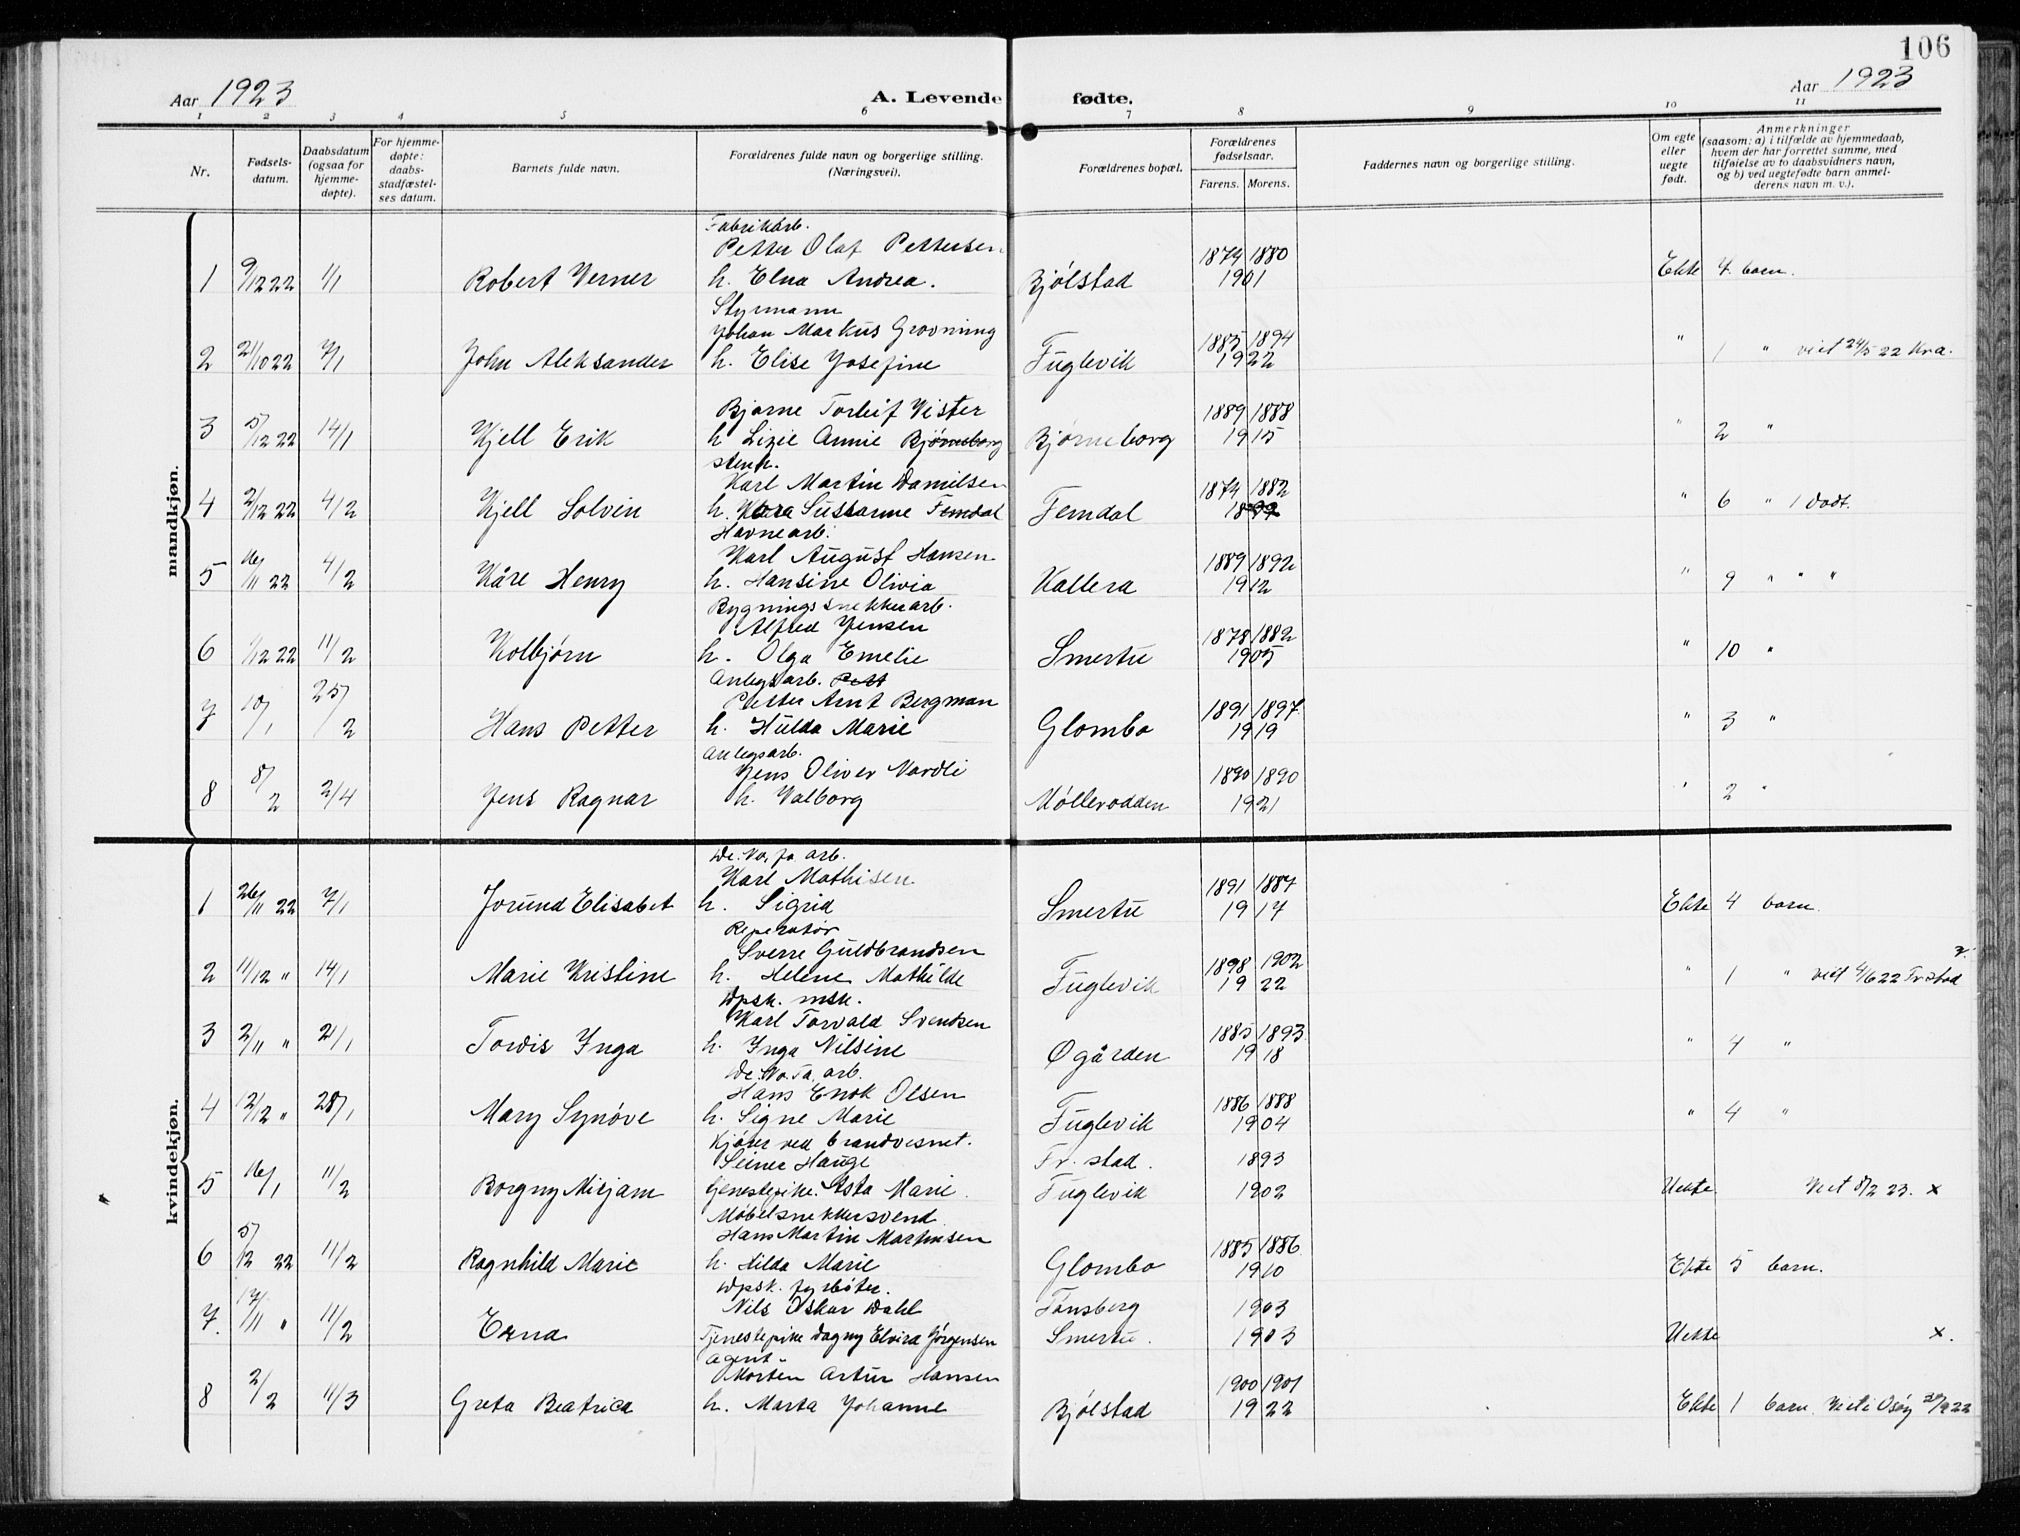 106
Aar 1923
A. Levende fødte.
Aar 1923
1 2 3 4 5 6 7 8 9 10 11
Nr.
Fødsels-
datum.
Daabsdatum
(ogsaa for
hjemme-
døpte).
For hjemme-
døpte:
daabs-
stadfæstel-
ses datum.
Barnets fulde navn.
Forældrenes fulde navn og borgerlige stilling.
(Næringsvei).
Forældrenes bopæl.
Forældrenes
fødselsaar.
Farens. Morens.
Faddernes navn og borgerlige stilling.
Om egte
eller
uegte
født.
Anmerkninger
(saasom: a) i tilfælde av hjemmedaab,
hvem der har forrettet samme, med
tilføielse av to daabsvidners navn,
og b) ved uegtefødte barn anmel-
derens navn m. v.).
mandkjøn.
Fabrikarb.
Petter Olaf Pettersen 1874 1880
1 9/12 22 1/1 Robert Verner h. Elna Andrea. Bjølstad 1901 Ekte 4 barn.
Styrmann
Johan Markus Grovning 1885 1894
2 21/10 22 7/1 John Aleksander h. Elise Josefine Fuglevik 1922 " 1 " viet 24/5 22 Kra.
Bjarne Torleif Vister 1889 1888
3 5/12 22 14/1 Kjell Erik h Lizie Annie Bjørneborg Bjørneborg 1915 " 2 "
stenh.
Karl Martin Danielsen 1874 1882
4 2/12 22 4/2 Kjell Solvin h. Susanne Femdal Femdal " 6 " 1 dødt.
Havnearb.
Karl August Hansen 1889 1892
5 16/11 22 4/2 Kåre Henry h. Hansine Olivia Kallera 1912 " 9 " " "
Bygningssnekkerarb.
Alfred Jensen 1878 1882
6 1/12 22 11/2 Kolbjørn h. Olga Emelie Smertu 1905 " 10 "
Anlegsarb. Pett
Petter Arnt Bergman 1891 1897
7 10/1 25/2 Hans Petter h. Hulda Marie Glombo 1919 " 3 "
Anlegsarb.
Jens Oliver Nordli 1890 1890
8 8/2 2/4 Jens Ragnar h. Valborg Møllerodden 1921 " 2 "
kvindekjøn.
De. No. fa. arb.
Karl Mathisen 1891 1887
1 26/11 22 7/1 Jorund Elisabet h. Sigrid Smertu 1917 Ekte 4 barn.
Reperatør
Sverre Guldbrandsen 1898 1902
2 11/12 " 14/1 Marie Kristine h. Helene Mathilde Fuglevik 1922 " 1 " viet 4/6 22 Fr.stad
Dpsk. msk.
Karl Torvald Svendsen 1885 1893
3 2/11 " 21/1 Tordis Inga h. Inga Nilsine Øgården 1918 " 4 "
De. No. Fa. arb.
Hans Enok Olsen 1886 1888
4 12/12 " 28/1 Mary Synøve h. Signe Marie Fuglevik 1904 " 4 "
Kjører ved brandvesnet.
Seiner Hauge Fr. stad. 1893
5 16/1 11/2 Borgny Mirjam Tjenestepike. Asta Marie. Fuglevik 1902 Uekte Viet 8/2 23. x
Møbelsnekkersvend
Hans Martin Martinsen 1885 1886
6 5/12 22 11/2 Ragnhild Marie h. Hilda Marie Glombo 1910 Ekte 5 barn.
Dpsk. fyrbøter.
Nils Oskar Dahl Tønsberg 1903
7. 17/11 " 11/2 Erna Tjenestepike Dagny Elvira Jørgensen Smertu. 1903 Uekte x.
Agent
Morten Artur Hansen 1900 1901
8 2/2 11/3 Greta Beatrice h. Marta Johanne Bjølstad 1922 Ekte 1 barn. Viet i Osøy 30/9 22